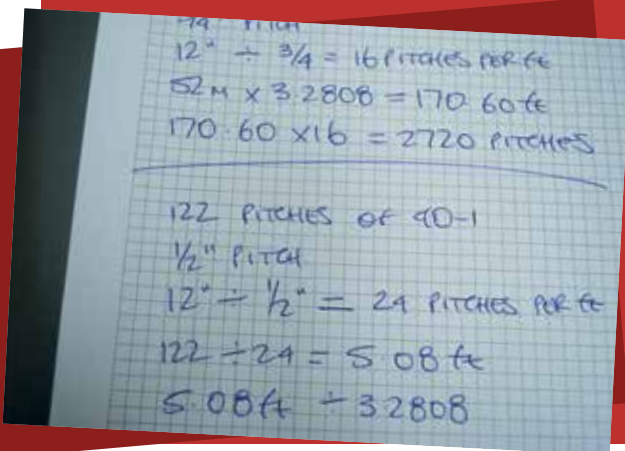 3/4 PITCH
12" ÷ 3/4 = 16 PITCHES PER ft
52M x 3.2808 = 170.60ft
170.60 x16 = 2720 PITCHES
122 PITCHES OF 40-1
1/2" PITCH
12" ÷ 1/2" = 24 PITCHES PER ft
122 ÷ 24 = 5.08 ft
5.08ft ÷ 3.2808